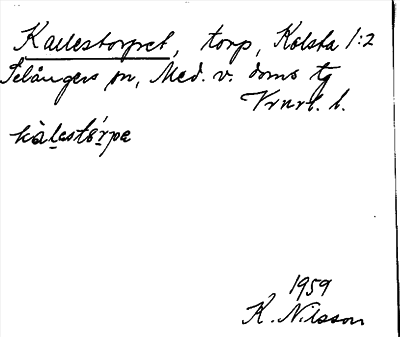 Kallestorpet, torp, Kolsta 1:2
Selångers sn, Med. v. doms tg
Vrnrl. h.
kàlestårpe
1959
K. Nilsson